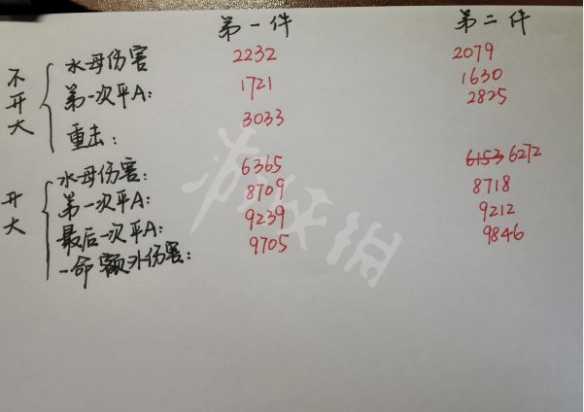 第一件 第二件
不开大
水母伤害 2232 2079
第一次平A: 1721 1630
重击: 3033 2825
开大
水母伤害: 6365 6153 6272
第一次平A: 8709 8718
最后一次平A: 9239 9212
一命额外伤害: 9705 9846
游侠网